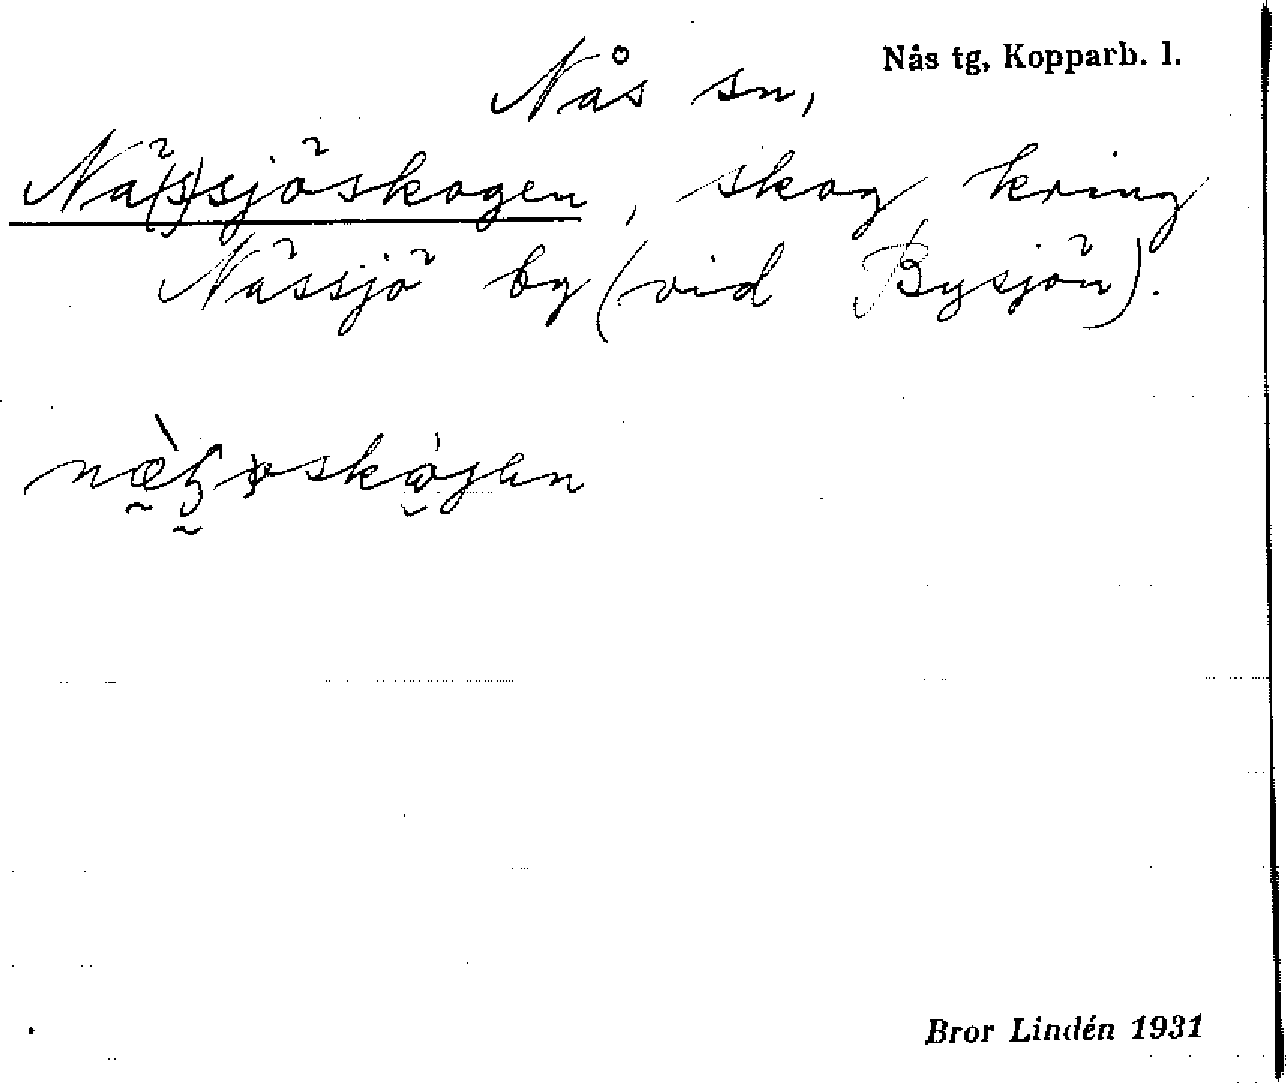 Nås tg, Kopparb. l.
Nås sn,
Nä(s)sjöskogen, skog kring
Nässjö by (vid Bysjön).
Bror Lindén 1931